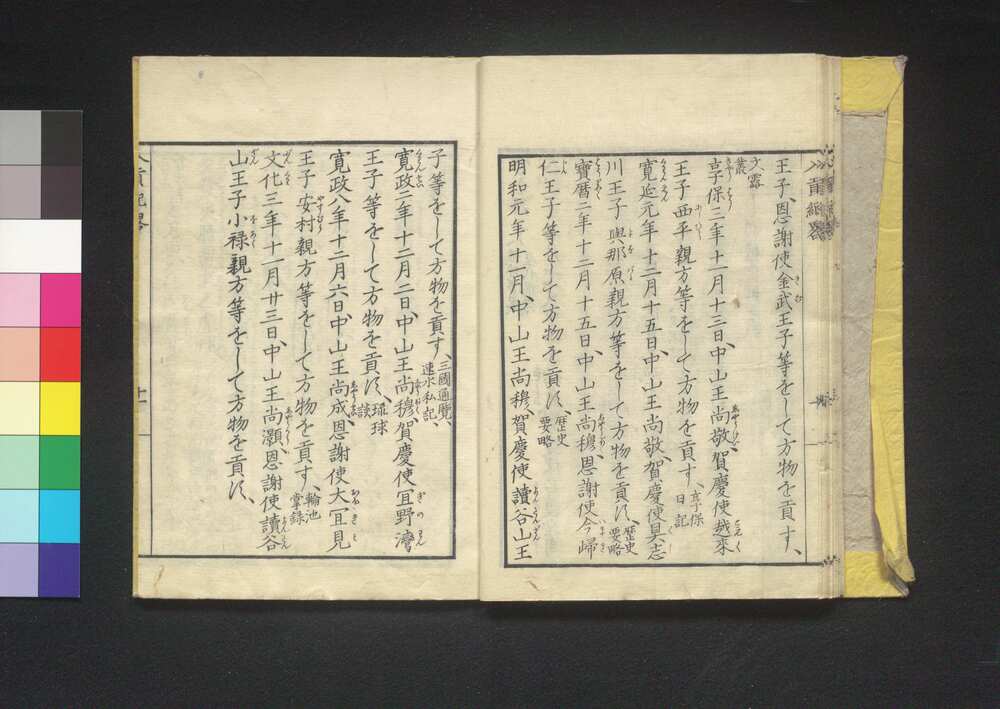 王子、恩謝使金武王子等をして方物を貢す、
文露
叢
享保三年十一月十三日、中山王尚敬、賀慶使越來
王子西平親方等をして方物を貢す、享保
日記
寛延元年十二月十五日、中山王尚敬賀慶使具志
川王子與那原親方等をして方物を貢す、歴史
要略
寶暦二年十二月十五日、中山王尚穆恩謝使今歸
仁王子等をして方物を貢す、歴史
要略
明和元年十一月、中山王尚穆、賀慶使讀谷山王
子等をして方物を貢す、三國通覽、
速水私記、
寛政二年十二月二日、中山王尚穆賀慶使宜野灣
王子等をして方物を貢す、琉球
談
寛政八年十二月六日、中山王尚成恩謝使大宜見
王子安村親方等をして方物を貢す、輪池
掌録
文化三年十一月廿三日、中山王尚灝、恩謝使讀谷
山王子小禄親方等をして方物を貢す、
十一